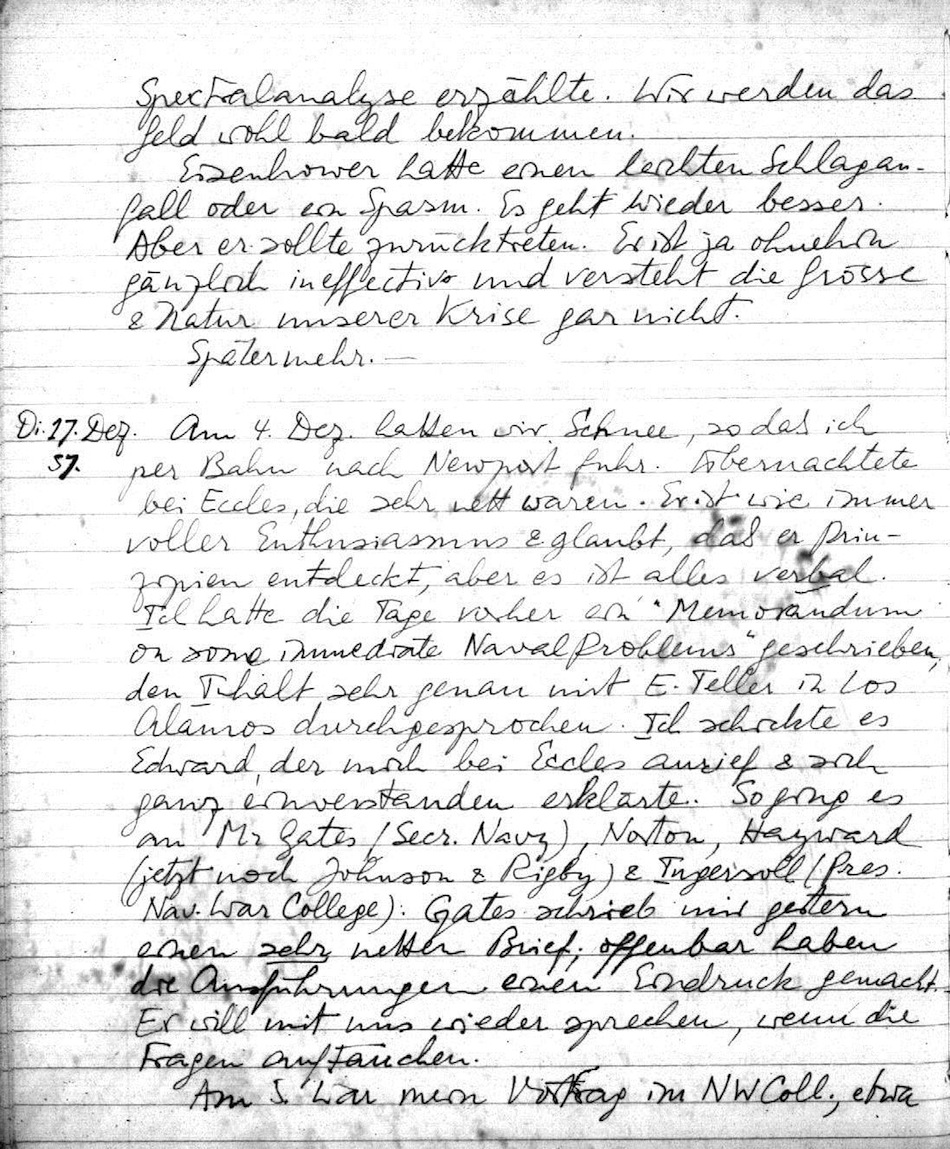 Spectralanalyse erzählte. Wir werden das
Geld wohl bald bekommen.
Eisenhower hatte einen leichten Schlagan-
fall oder ein Spasm. Es geht wieder besser.
Aber er sollte zurücktreten. Er ist ja ohnehin
gänzlich ineffectiv und versteht die Grösse
& Natur unserer Krise gar nicht.
Später mehr. —
Di. 17. Dez. Am 4. Dez. hatten wir Schnee, so daß ich
57. per Bahn nach Newport fuhr. Übernachtete
bei Eccles, die sehr nett waren. Er ist wie immer
voller Enthusiasmus & glaubt, daß er Prin-
zipien entdeckt, aber es ist alles verbal.
Ich hatte die Tage vorher ein "Memorandum
on some immediate Naval Problems" geschrieben,
den Inhalt sehr genau mit E. Teller in Los
Alamos durchgesprochen. Ich schickte es
Edward, der mich bei Eccles anrief & sich
ganz einverstanden erklärte. So ging es
an Mr Gates (Secr. Navy), Norton, Hayward
(jetzt noch Johnson & Rigby) & Ingersoll (Pres.
Nav. War College). Gates schrieb mir gestern
einen sehr netten Brief; offenbar haben
die Ausführungen einen Eindruck gemacht.
Er will mit uns wieder sprechen, wenn die
Fragen auftauchen.
Am 5. war mein Vortrag im NWColl., etwa